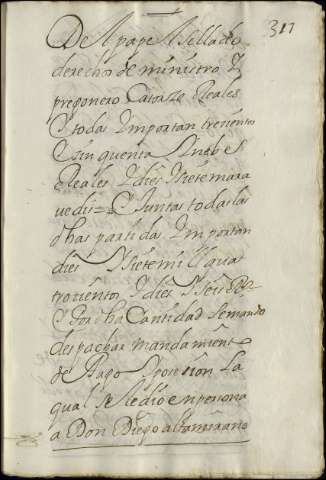 317
Del papel sellado
derechos de ministro Y
pregonero Catorze Reales
Y todas Ymportan trecientos
Y sinquenta Y nuebe
Reales Y dies Y siete mara
uedis = Y Juntas todas las
dhas partidas Ymportan
dies Y siete mil qua
trocientos Y dies Y seis Rs
Y Por dha Cantidad se mando
despachar mandamiento
de Pago Y posecion La
qual se le dio en persona
a Don Diego altamirano